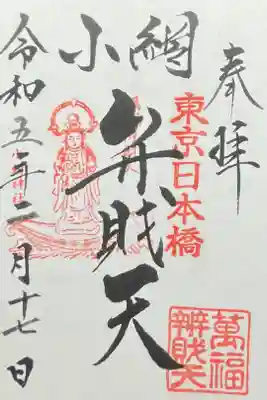 奉拝
東京日本橋
小網
弁財天
令和五年二月十七日
萬福
辨財天